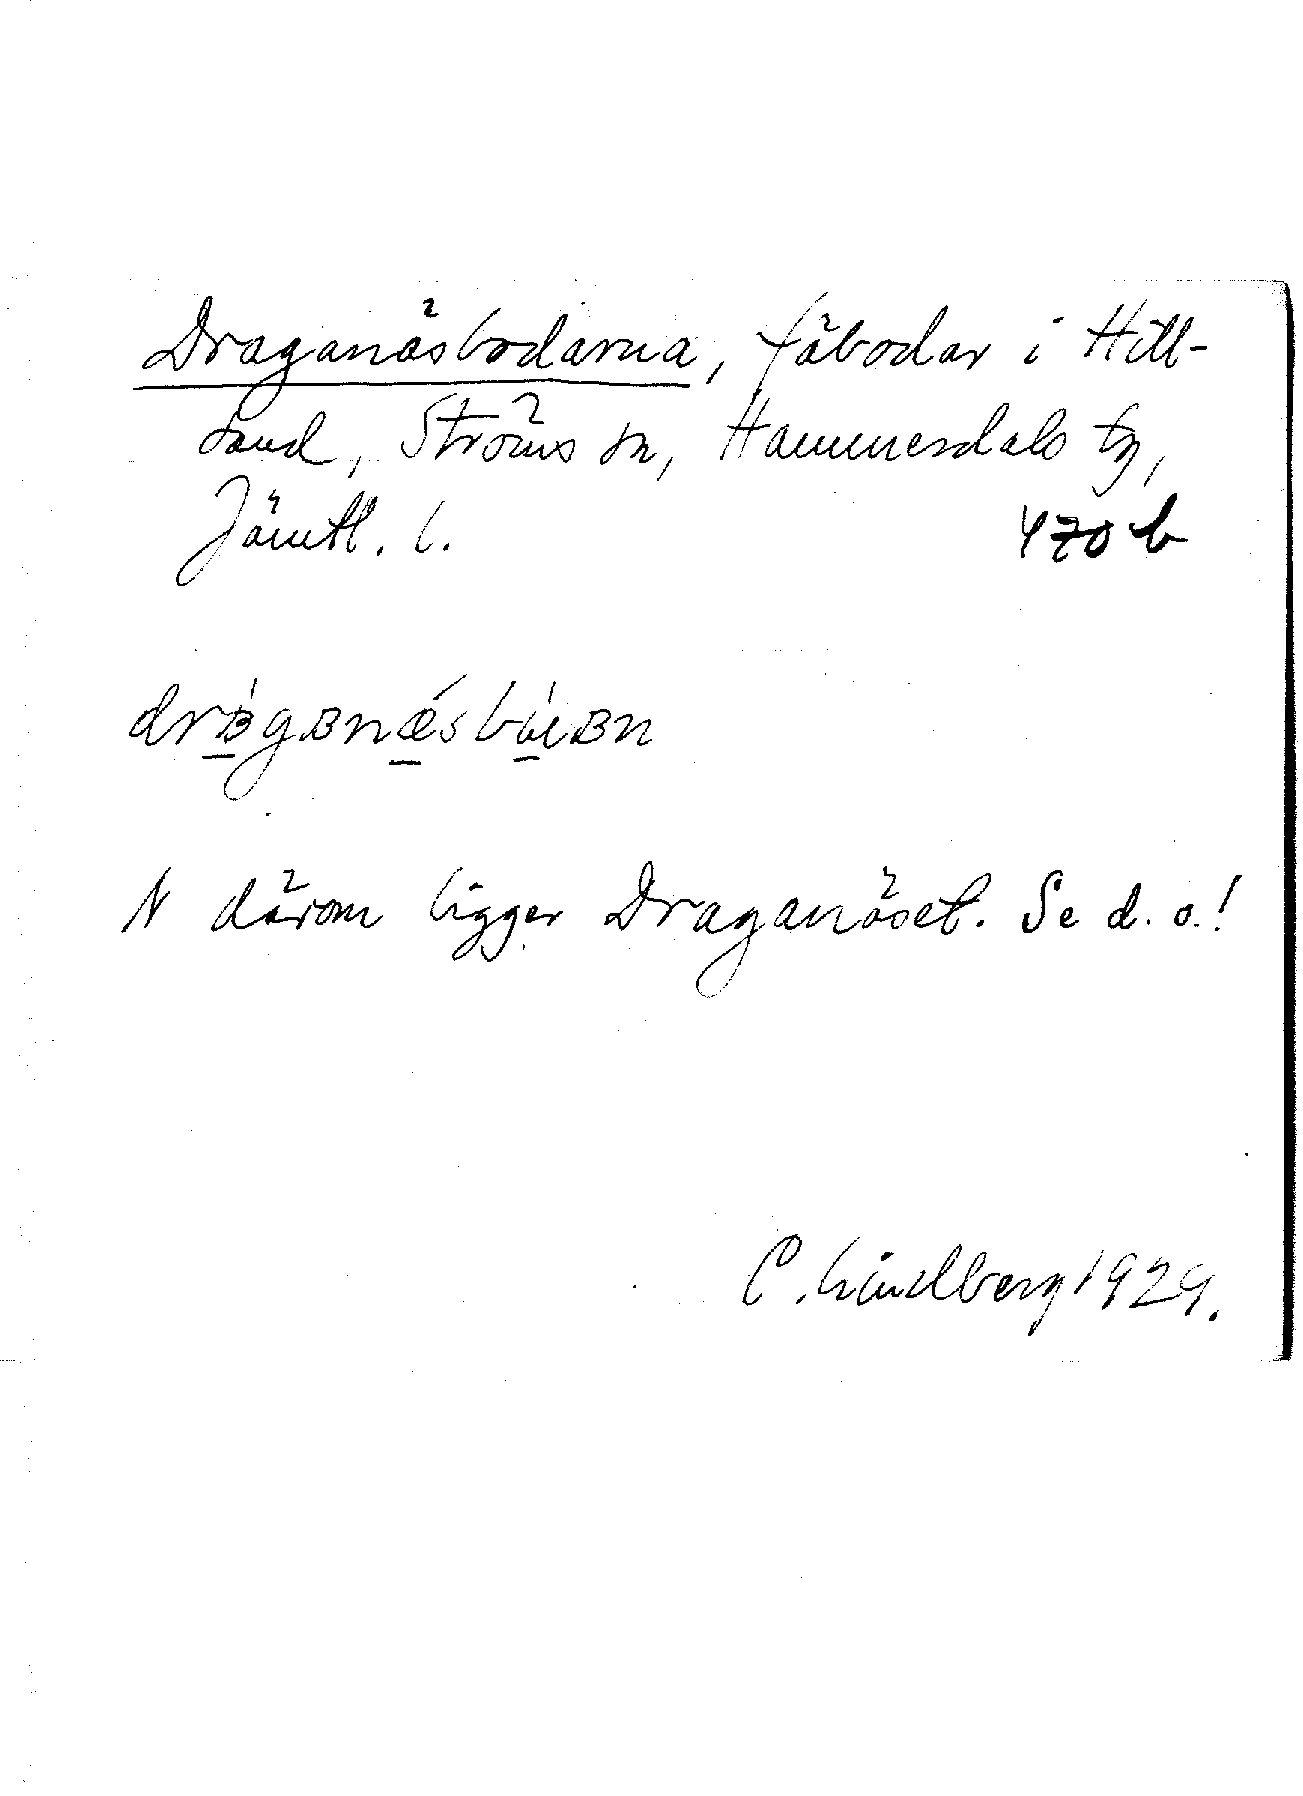 Draganäsbodarna, fäbodar i Hill-
sand, Ströms sn, Hammerdals tg,
Jämtl. l.
470 b
drɞ́gɞnǽsbúɞn
N därom ligger Draganäset. Se d. o.!
C. Lindberg 1929.